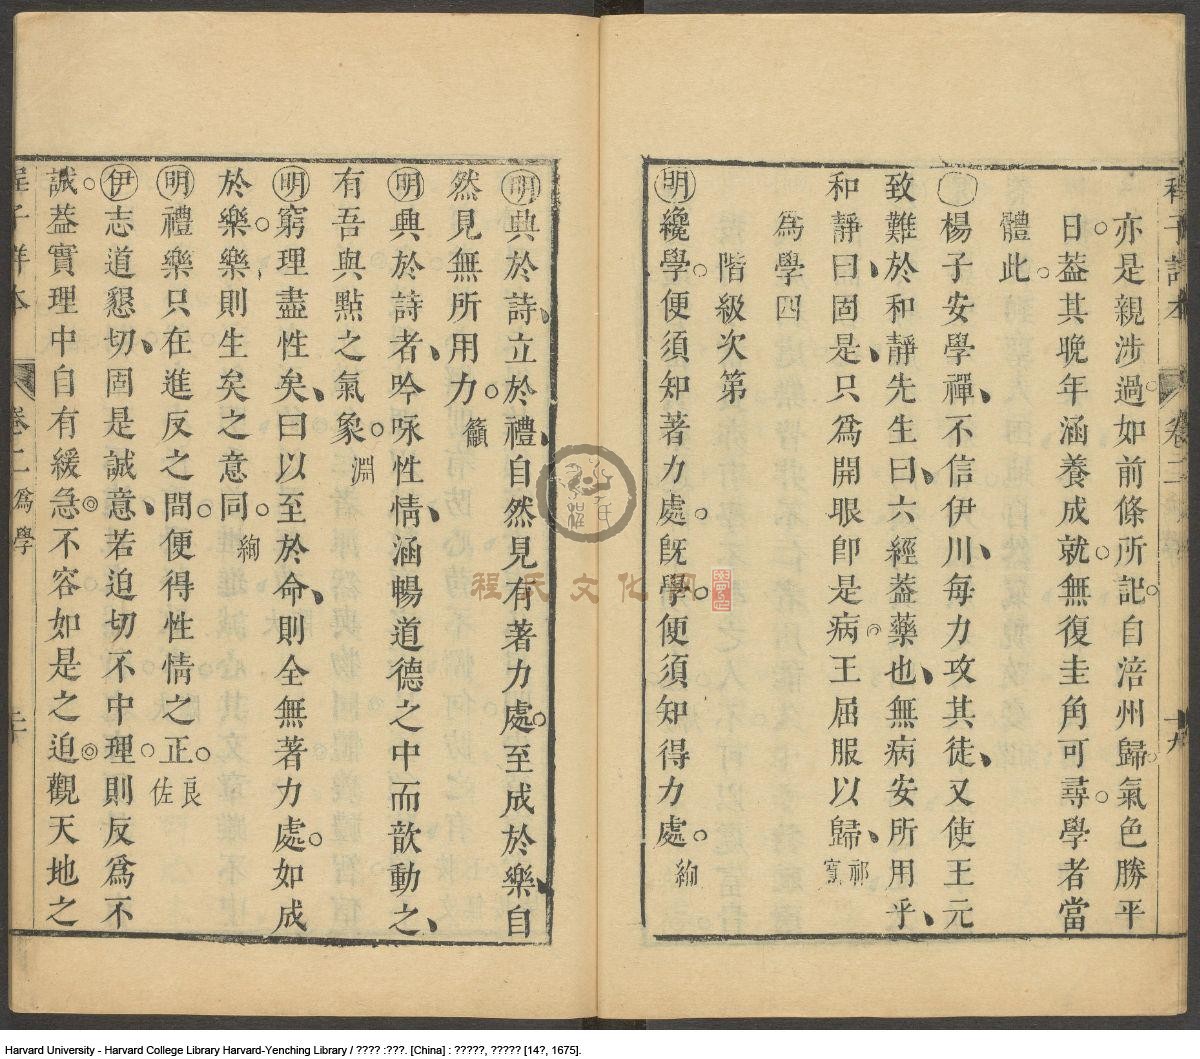 亦是親涉過如前條所記自涪州歸氣色勝平
日葢其晚年涵養成就無復圭角可尋學者當
體此
楊子安學禪不信伊川每力攻其徒又使王元
致難於和靜先生曰六經葢藥也無病安所用乎
和靜曰固是只為開眼卽是病王屈服以歸祁寬
為學四
階級次第
明纔學便須知著力處旣學便須知得力處絢
明興於詩立於禮自然見有著力處至成於樂自
然見無所用力籲
明興於詩者吟咏性情涵暢道德之中而歆動之
有吾與點之氣象淵
明窮理盡性矣曰以至於命則全無著力處如成
於樂樂則生矣之意同絢
明禮樂只在進反之間便得性情之正良佐
伊志道懇切固是誠意若迫切不中理則反為不
誠葢實理中自有緩急不容如是之迫觀天地之
程子詳本 卷二 為學
程氏文化网
Harvard University - Harvard College Library Harvard-Yenching Library / ???? :???. [China] : ?????, ????? [14?, 1675].